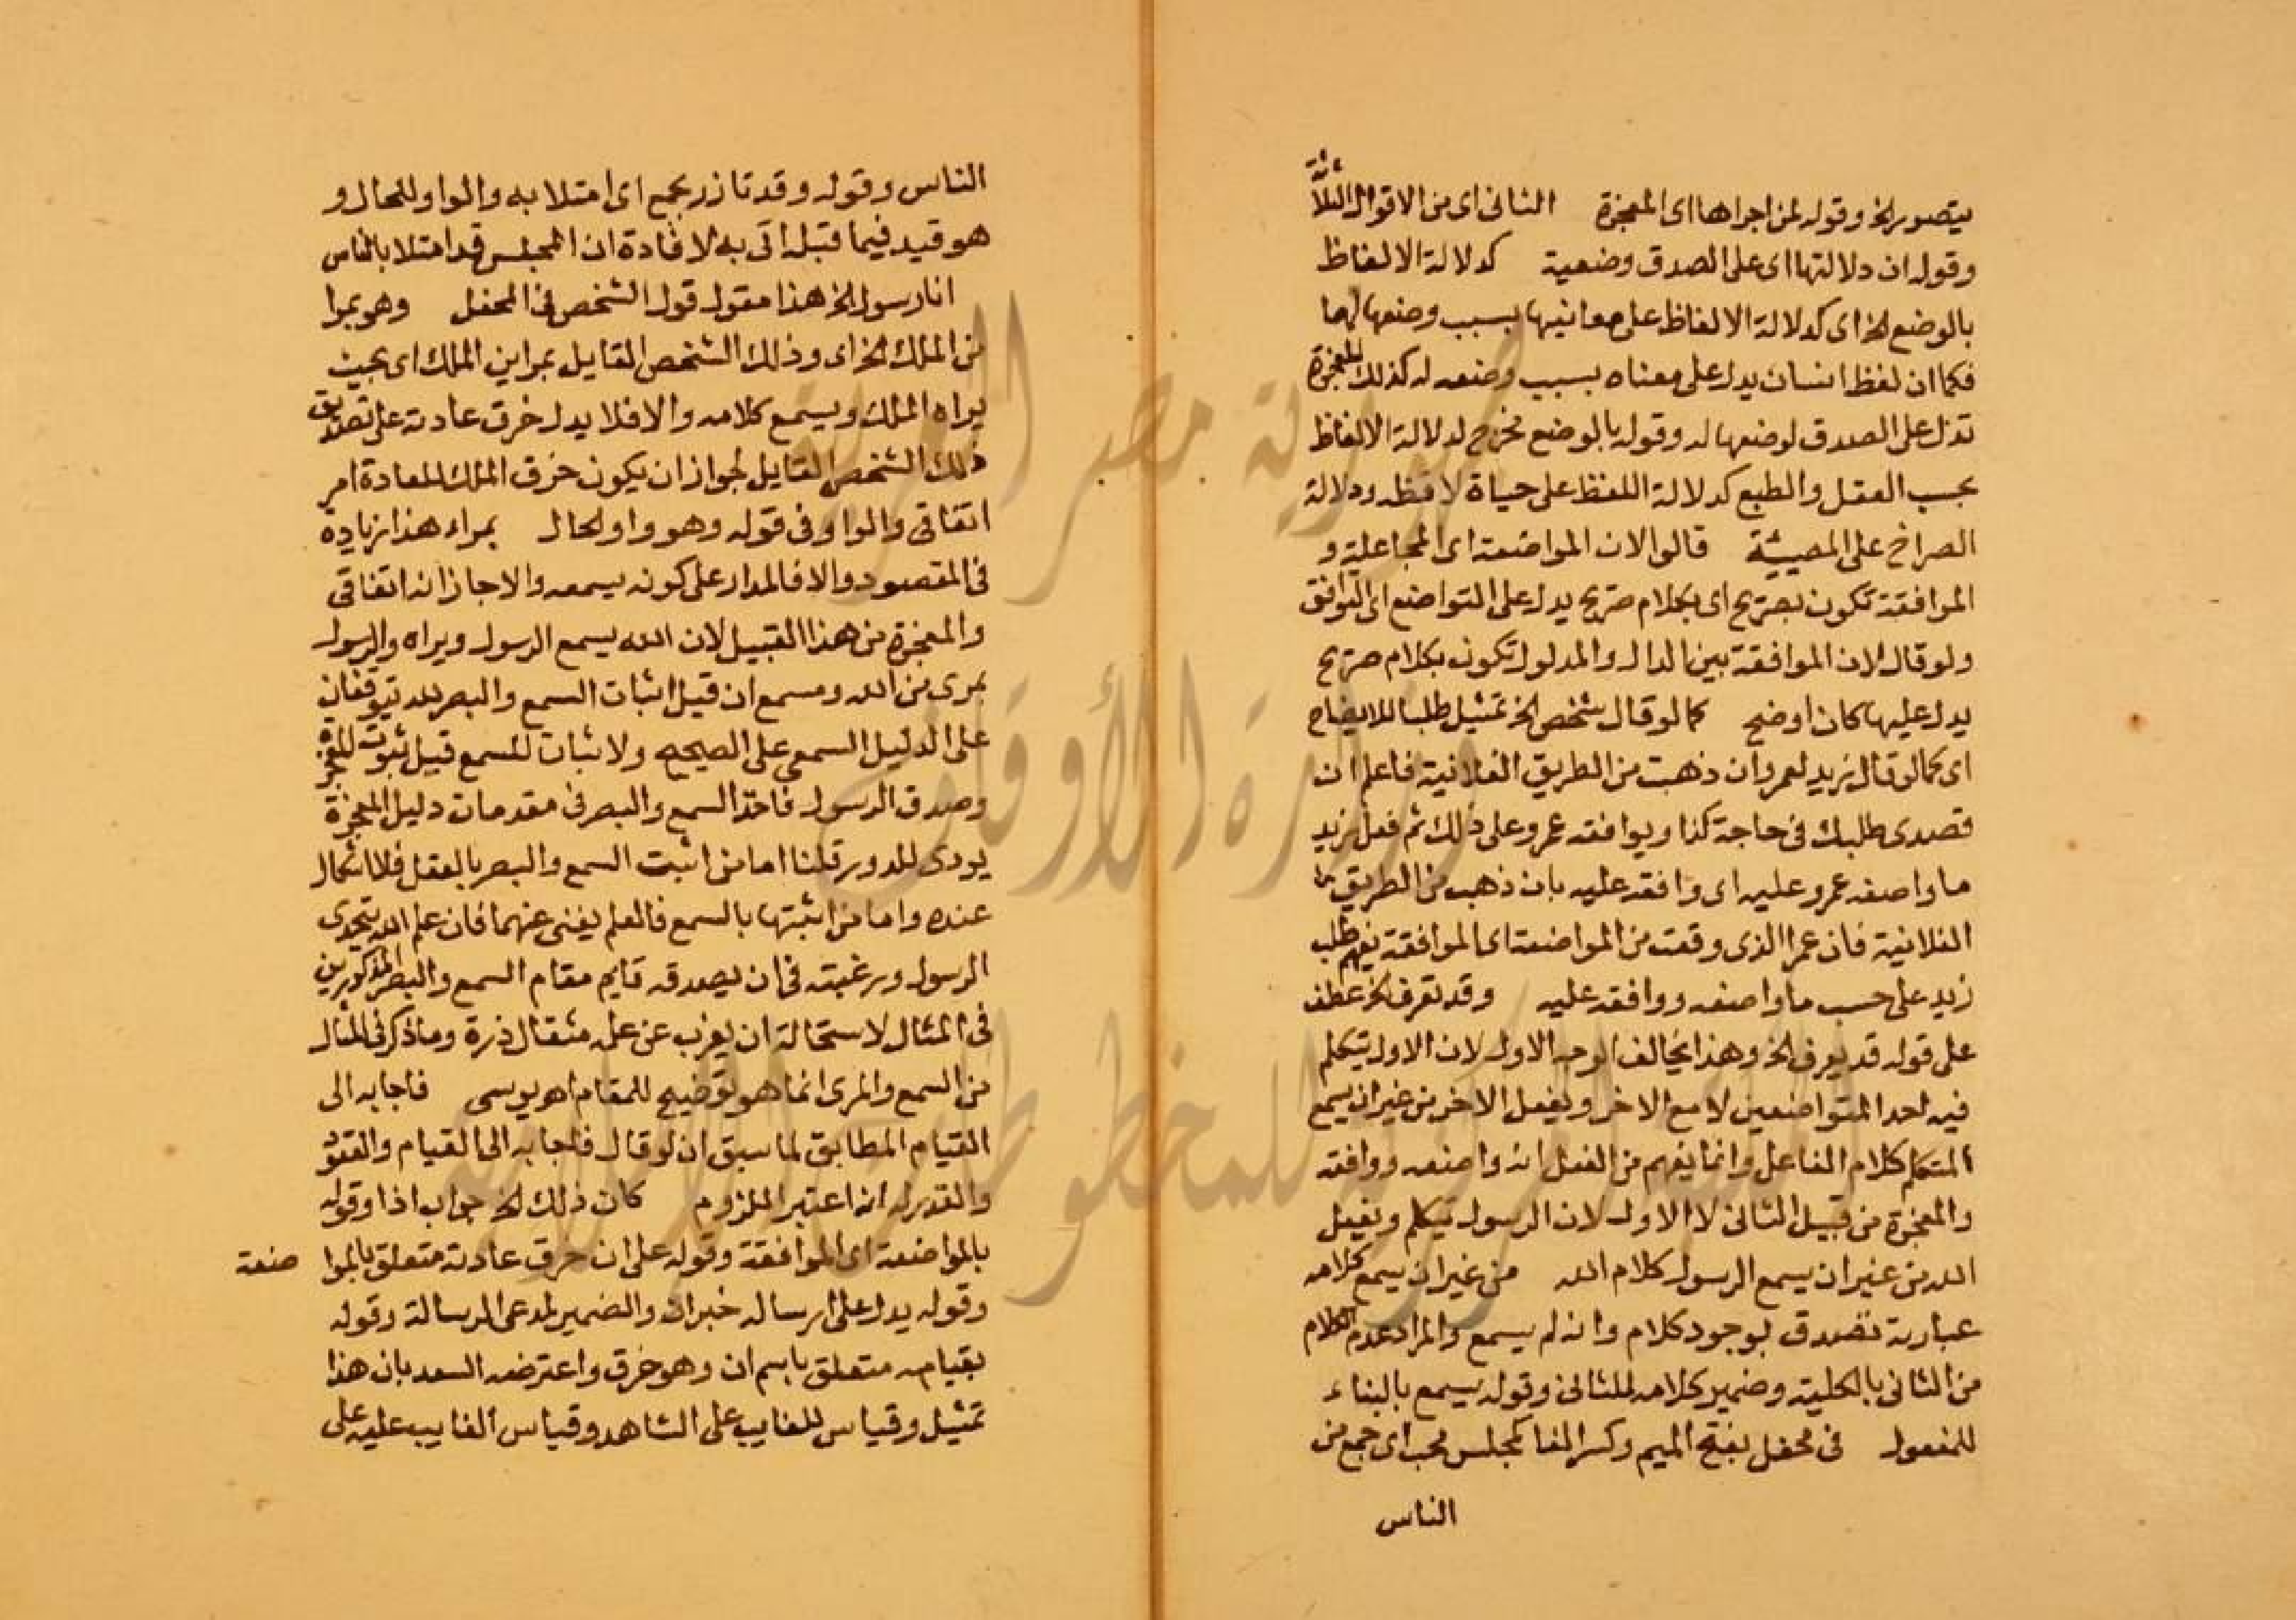 يتصور الخ وقوله لمن اجراها اى المعجزة الثانى اى من الاقوال الثلاثة
وقوله ان دلالتها اى على الصدق وضعية كدلالة الالفاظ
بالوضع الخ اى كدلالة الالفاظ على معانيها بسبب وضعها لها
فكما ان لفظ انسان يدل على معناه بسبب وضعه له كذلك المعجزة
تدل على الصدق لوضعها له وقوله بالوضع مخرج لدلالة الالفاظ
بحسب العقل والطبع كدلالة اللفظ على حياة لافظه ودلالة
الصراخ على المصيبة قالوا لان المواضعة اى المجاعلة و
الموافقة تكون بصريح اى بكلام صريح يدل على التواضع اى التوافق
ولو قال لان الموافقة بين الدال والمدلول تكون بكلام صريح
يدل عليها كان اوضح كما لو قال شخص الخ تمثيل طلبا للايضاح
اى كما لو قال زيد لعمرو ان ذهبت من الطريق الفلانية فاعلم ان
قصدى طلبك فى حاجة كذا ويوافقه عمرو على ذلك ثم فعل زيد
ما واضعه عمرو عليه اى وافقه عليه بان ذهب من الطريق
الفلانية فان عمرا الذى وقعت من المواضعة اى الموافقة يفهم طلب
زيد على حسب ما واضعه ووافقه عليه وقد تعرف الخ عطف
على قوله قد يعرف الخ وهذا يخالف الوجه الاول لان الاول يتكلم
فيه احد المتواضعين لا مع الاخر ويفعل الاخر من غير ان يسمع
المتكلم كلام الفاعل وانما يفهم من الفعل انه واضعه ووافقه
والمعجزة من قبيل الثانى لا الاول لان الرسول يتكلم ويفعل
الله من غير ان يسمع الرسول كلام الله من غير ان يسمع كلامه
عبارته تصدق بوجود كلام وانه لم يسمع والمراد عدم الكلام
من الثانى بالكلية وضمير كلامه للثانى وقوله يسمع بالبناء
للمفعول فى محفل بفتح الميم وكسر الفا كمجلس محب اى جمع من
الناس
الناس وقوله وقد تازر بجمع اى امتلا به والواو للحال و
هو قيد فيما قبله اتى به لافادة ان المجلس قد امتلا بالناس
انا رسول الخ هذا مقول قول الشخص فى المحفل وهو بمرا
من الملك الخ اى وذلك الشخص القايل بمراين الملك اى بحيث
يراه الملك ويسمع كلامه والا فلا يدل خرق عادته على تصديق
ذلك الشخص القايل لجواز ان يكون خرق الملك للعادة امر
اتفاقى والواو فى قوله وهو واو الحال بمراء هذا زيادة
فى المقصود والا فالمدار على كونه يسمعه والا جاز انه اتفاقى
والمعجزة من هذا القبيل لان الله يسمع الرسول ويراه والرسول
بمرى من الله ومسمع ان قيل اثبات السمع والبصر لله يتوقفان
على الدليل السمعى على الصحيح ولا ثبات للسمع قبل ثبوت المعجزة
وصدق الرسول فاخذ السمع والبصر فى مقدمات دليل المعجزة
يودى للدور قلنا اما من اثبت السمع والبصر بالعقل فلا اشكال
عنده واما من اثبتها بالسمع فالعلم يغنى عنهما فان علم الله بتحدى
الرسول ورغبته فى ان يصدقه قايم مقام السمع والبصر المذكورين
فى المثال لاستحالة ان يعزب عن علمه مثقال ذرة وما ذكر فى المثال
من السمع والمرى انما هو توضيح للمقام اهو يوسى فاجابه الى
القيام المطابق لما سبق ان لو قال فاجابه الى القيام والقعود
والقدر له انه اعتبر الملزوم كان ذلك الخ جواب اذا وقوله
بالمواضعة اى الموافقة وقوله على ان خرق عادته متعلق بالموا ضعة
وقوله يدل على ارساله خبر ان والضمير لمدعى الرسالة وقوله
بقيامه متعلق باسم ان وهو خرق واعترضه السعد بان هذا
تمثيل وقياس للغايب على الشاهد وقياس الغايب عليه على
جمهورية مصر العربية
وزارة الأوقاف
المكتبة المركزية للمخطوطات الإسلامية